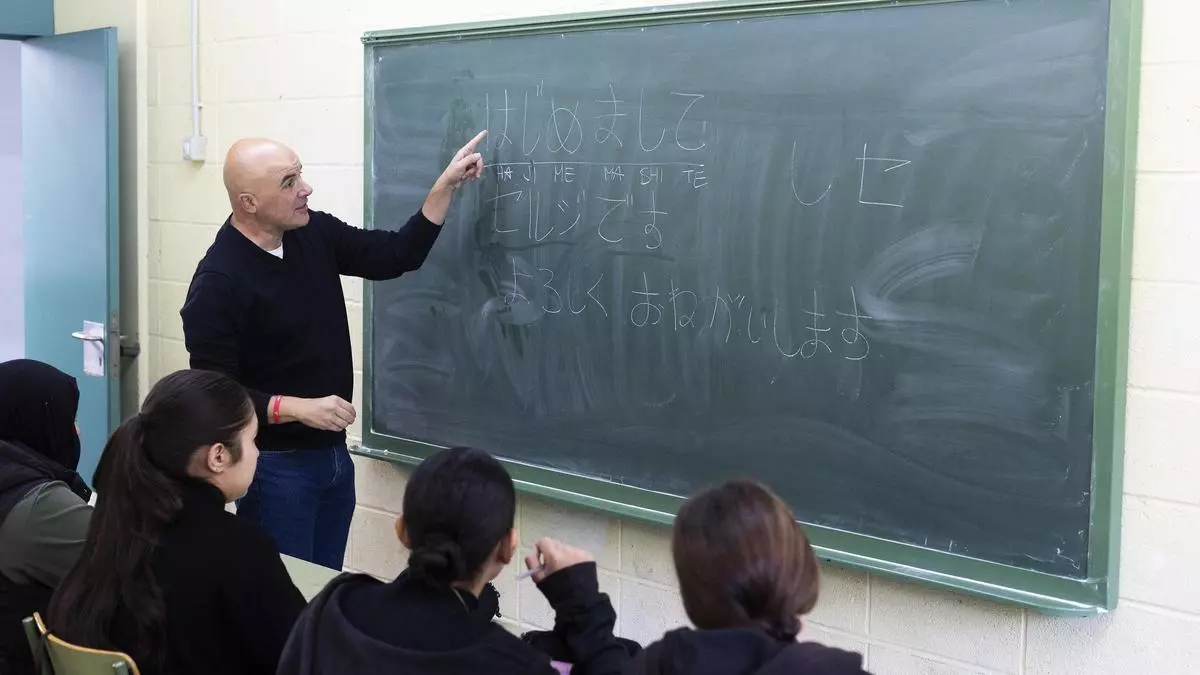 はじめまして
HA JI ME MA SHI TE
セルジです
よろしく おねがいします
し セ